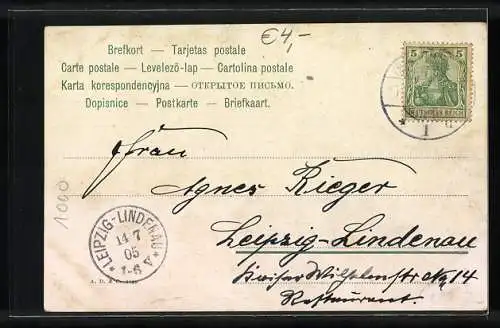 €4,-
Brefkort — Tarjetas postale
Carte postale — Levelező-lap — Cartolina postale
Karta korespondencyjna — ОТКРЫТОЕ ПИСЬМО.
Dopisnice — Postkarte — Briefkaart.
5 5
DEUTSCHES REICH
* I a
Frau
Agnes Rieger
Leipzig-Lindenau
Kaiser Wilhelmstr No 14
Restaurant.
1000
* LEIPZIG-LINDENAU *
14 7
05
1-6 V
A. D. &